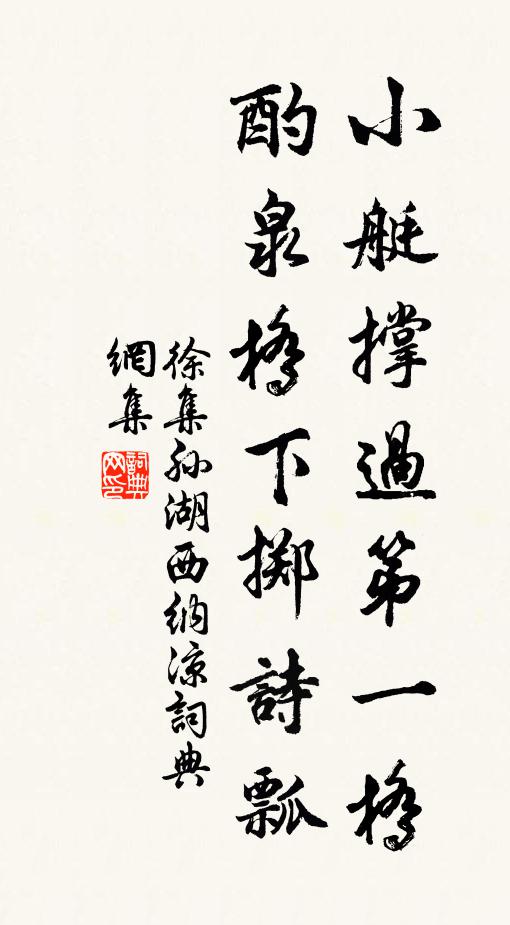 小艇撐過第一橋
酌泉橋下擲詩瓢
徐集孙湖西納涼詞典
網集
詞典
网印